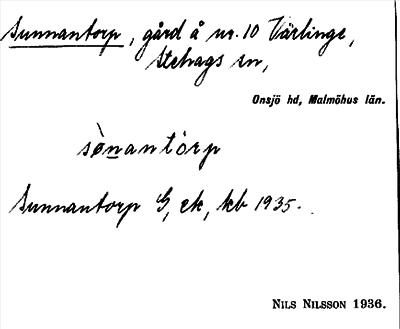 Sunnantorp, gård å nr. 10 Värlinge,
Stehags sn,
Onsjö hd, Malmöhus län.
sònantòrp
Sunnantorp G, ek, kb 1935.
NILS NILSSON 1936.